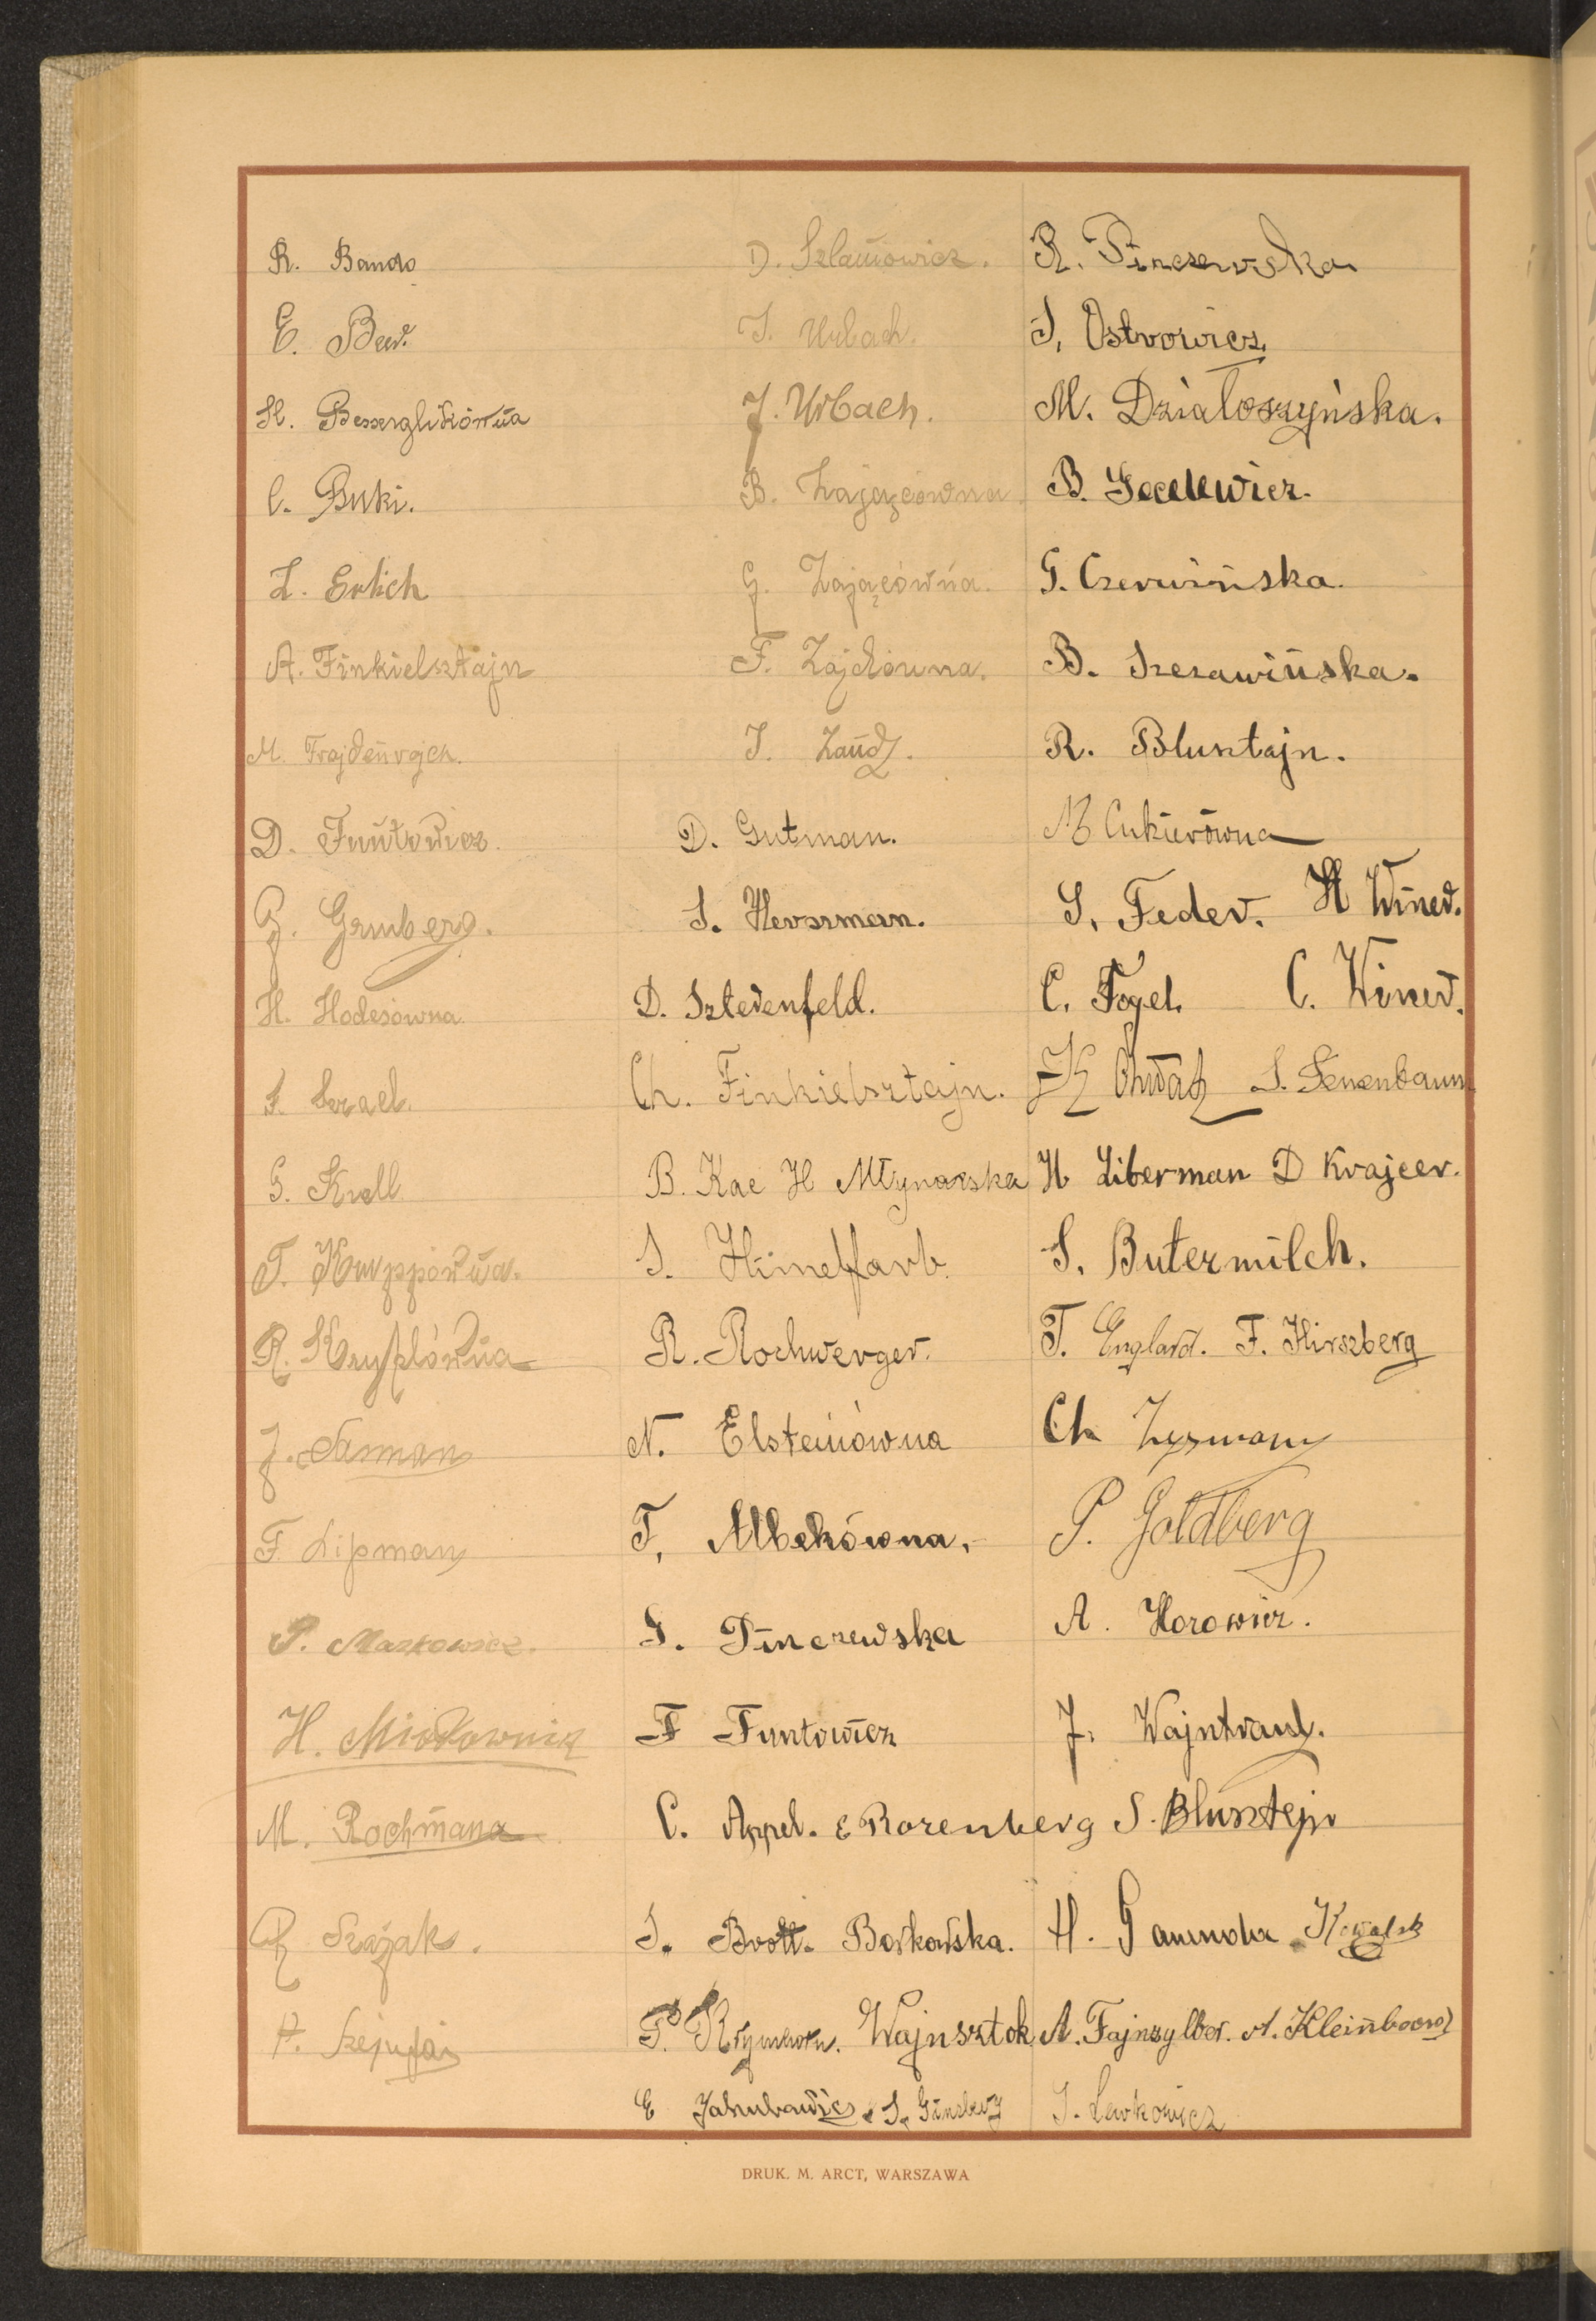 R. Bando
E. Ber.
H. Besserglikówna
C. Buki.
L. Erlich
A. Finkielsztajn
M. Frajdenrajch.
D. Funtowicz.
G. Grinberg.
H. Hodesówna.
F. Izrael.
G. Kroll
T. Kruppówna.
R. Krysztówna
J. Laman
F. Lipman
P. Markowicz.
H. Miodownik
M. Rochmana
Szajak.
P.
D. Szlamowicz.
I. Urbach.
J. Urbach.
B. Zającówna
G. Zającówna.
F. Zajdówna.
I. Zand.
D. Gutman.
S. Herszman.
D. Szterenfeld.
Ch. Finkielsztajn.
B. Kac H Młynarska
S. Himelfarb.
R. Rochwerger.
N. Elsteinówna
T. Albekówna.
G. Pinczewska
F Funtowicz
C. Appel. E Rozenberg
S. Brott. Borkowska.
P. Wajnsztok
E Jakubowicz. S. Ginzberg
R. Pinczewska
S. Ostrowicz.
M. Działoszyńska.
B. Gecelewicz.
G. Czerwińska.
B. Szczawińska.
R. Blusztajn.
M Cukierówna
S. Feder. H Winer.
C. Fogel. C. Winer.
Chwat S. Tenenbaum
H Liberman D Krajcer.
S. Butermilch.
T. Englard. F. Hirszberg
Ch Zyzman
P. Goldberg
A. Horowicz.
J. Wajntraub.
S. Blusztejn
H. Kowalsk
A. Fajnzylber. A. Kleinboord
I. Lewkowicz
DRUK. M. ARCT, WARSZAWA